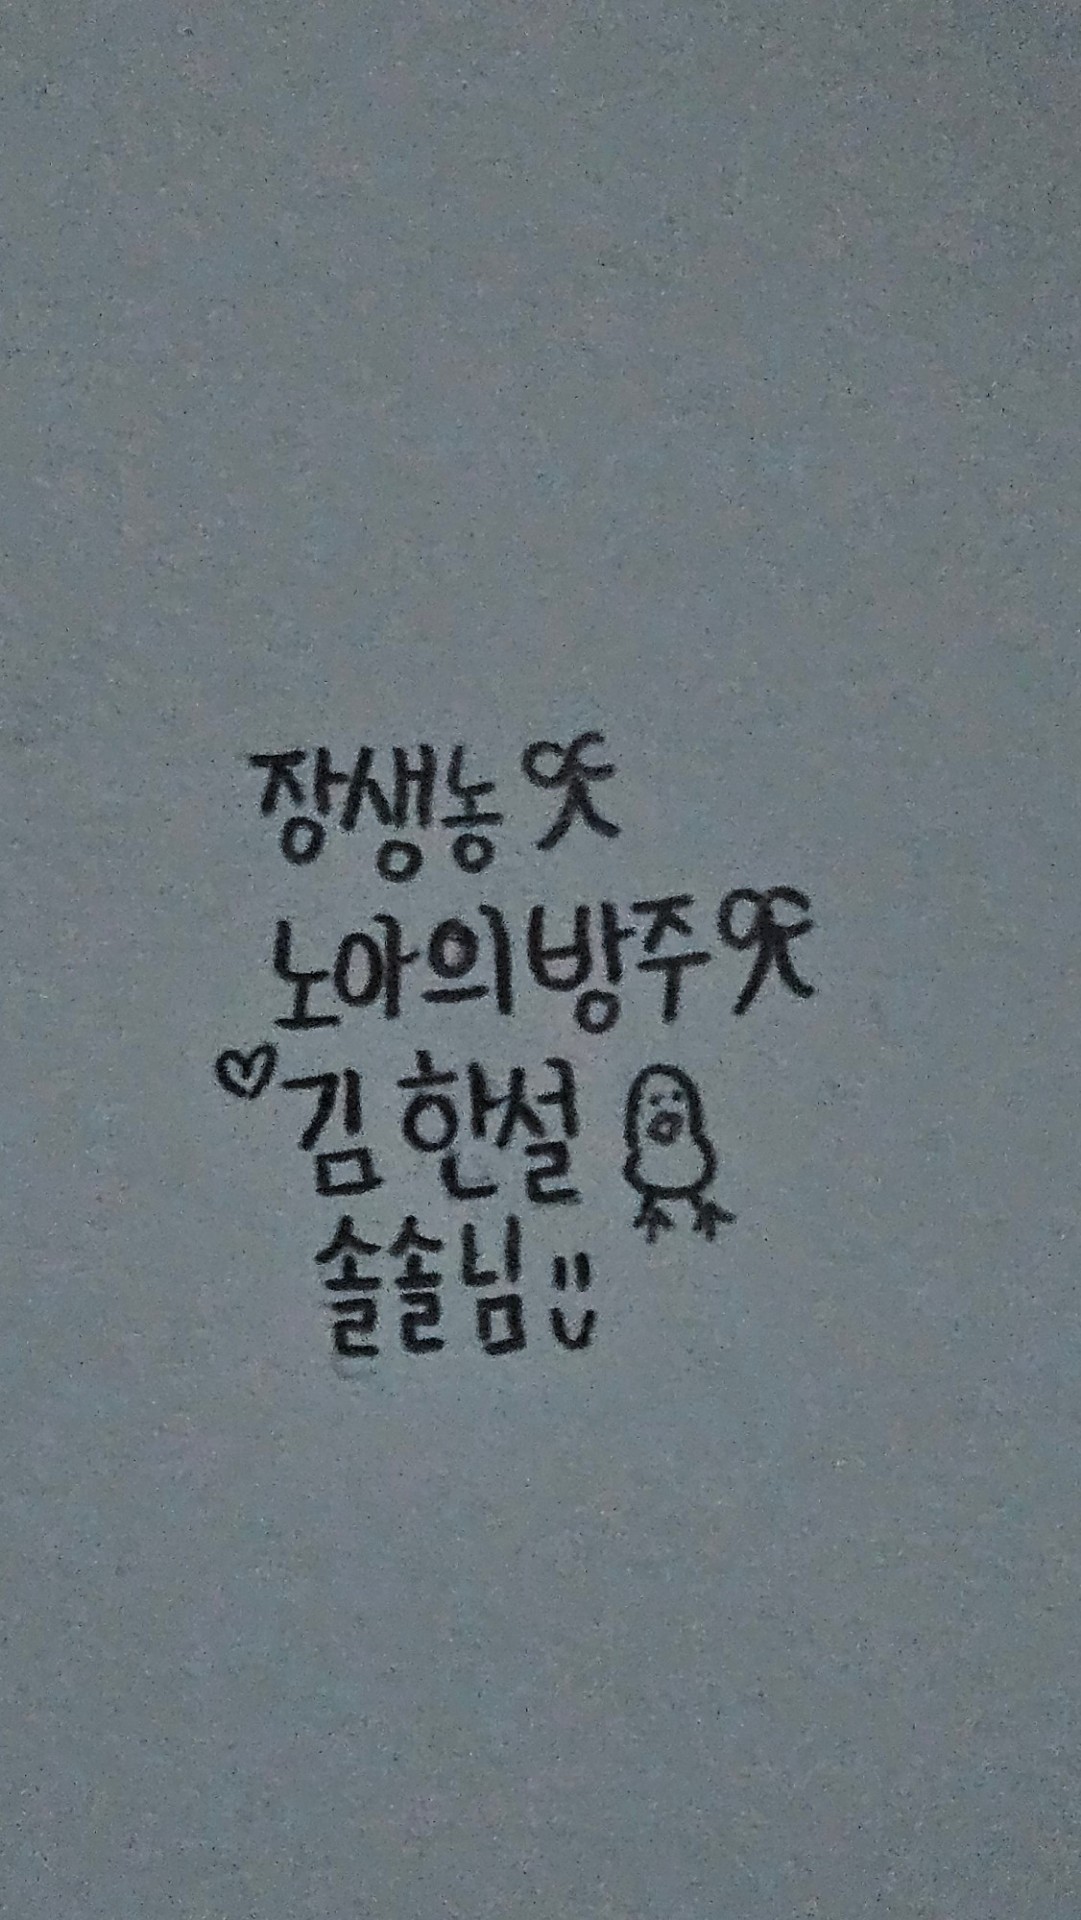 장생농
노아의 방주
♡김 한설
솔솔님 :)